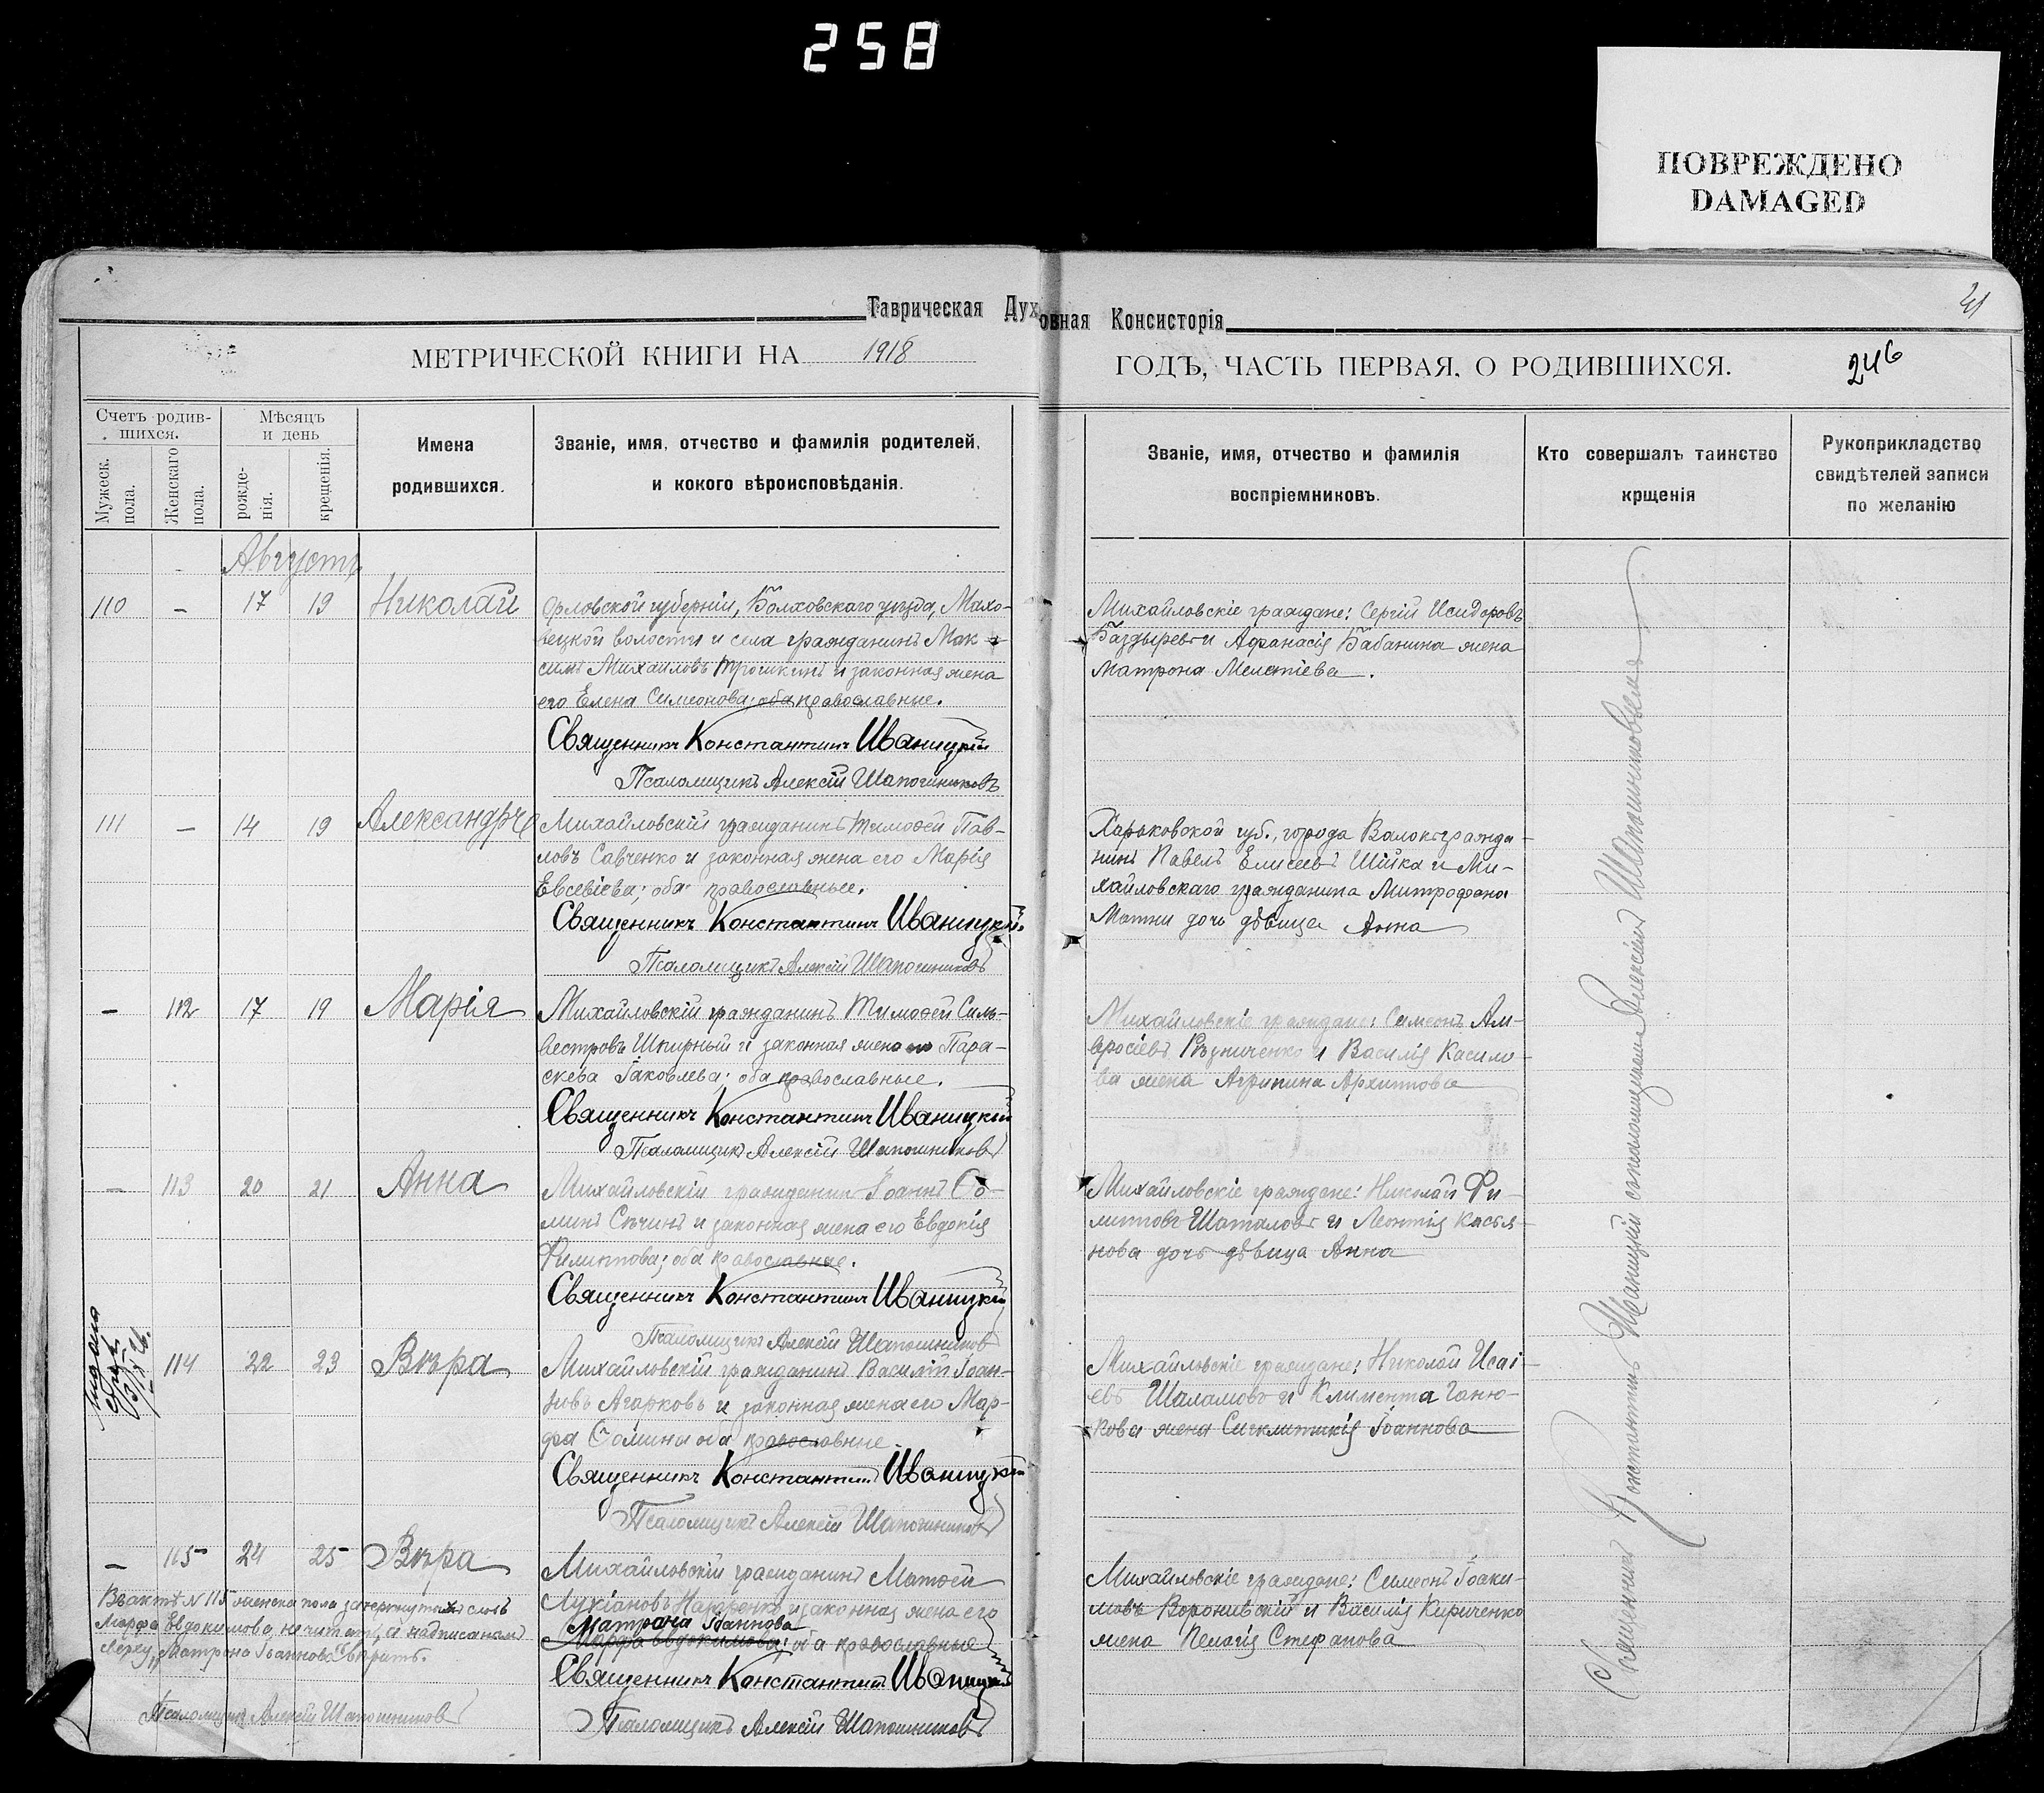 258
ПОВРЕЖДЕНО
DAMAGED
Таврическая Духовная Консисторія
МЕТРИЧЕСКОЙ КНИГИ НА 1918 ГОДЪ, ЧАСТЬ ПЕРВАЯ, О РОДИВШИХСЯ.
246
Счетъ родив-
шихся.
Мужеск.
пола.
Женскаго
пола.
Мѣсяцъ
и день
рожде-
нія.
крещенія.
Имена
родившихся.
Званіе, имя, отчество и фамилія родителей,
и кокого вѣроисповѣданія.
Званіе, имя, отчество и фамилія
воспріемниковъ.
Кто совершалъ таинство
крщенія
Рукоприкладство
свидѣтелей записи
по желанію
Августъ
110 - 17 19 Николай
Орловской губерніи, Болховскаго уѣзда, Махо-
вецкой волости и села гражданинъ Мак-
симъ Михаиловъ Трошкинъ и законная жена
его Елена Симеонова; оба православные.
Священникъ Константинъ Иваницкій
Псаломщикъ Алексій Шапошниковъ
Михайловскіе граждане: Сергій Исидоровъ
Баздыревъ и Афанасія Бабанина жена
Матрона Мелетіева.
111 - 14 19 Александръ
Михайловскій гражданинъ Тимоѳей Пав-
ловъ Савченко и законная жена его Марія
Евсевіева; оба православные.
Священникъ Константинъ Иваницкій.
Псаломщикъ Алексій Шапошниковъ
Харьковской губ., города Валокъ гражда-
нинъ Павелъ Елисеевъ Шійка и Ми-
хайловскаго гражданина Митрофана
Матни дочь дѣвица Анна
- 112 17 19 Марія
Михайловскій гражданинъ Тимоѳей Силь-
вестровъ Шкирный и законная жена его Пара-
скева Іаковлева; оба православные.
Священникъ Константинъ Иваницкій
Псаломщикъ Алексій Шапошниковъ
Михайловскіе граждане: Симеонъ Ам-
вросіевъ Рѣзниченко и Василія Касимо-
ва жена Агрипина Архиппова
- 113 20 21 Анна
Михайловскій гражданинъ Іоаннъ Ѳо-
минъ Сѣчинъ и законная жена его Евдокія
Филиппова; оба православные.
Священникъ Константинъ Иваницкій
Псаломщикъ Алексій Шапошниковъ
Михайловскіе граждане: Николай Фи-
липповъ Шаталовъ и Леонтія Касья-
нова дочь дѣвица Анна
114 22 23 Вѣра
Михайловскій гражданинъ Василій Іоан-
новъ Агарковъ и законная жена его Мар-
фа Ѳомина оба православные.
Священникъ Константинъ Иваницкій
Псаломщикъ Алексій Шапошниковъ
Михайловскіе граждане: Николай Исаі-
евъ Шаламовъ и Климента Ганю-
кова жена Сигклитикія Іоаннова
- 115 24 25 Вѣра
Михайловскій гражданинъ Матѳей
Лукіановъ Назаренко и законная жена его
Матрона Іоаннова
Марфа Евдокимова; оба православные
Священникъ Константинъ Иваницкій
Псаломщикъ Алексій Шапошниковъ
Михайловскіе граждане: Симеонъ Іоаки-
мовъ Воронивскій и Василія Кириченко
жена Пелагія Стефанова
Въ актѣ N 115 женска пола зачеркнутыхъ словъ
Марфа Евдокимова, не читать, а надписаннымъ
верху „Матрона Іоаннова" вѣрить.
Псаломщикъ Алексій Шапошниковъ
Священникъ Константинъ Иваницкій съ псаломщикомъ Алексіемъ Шапошниковымъ